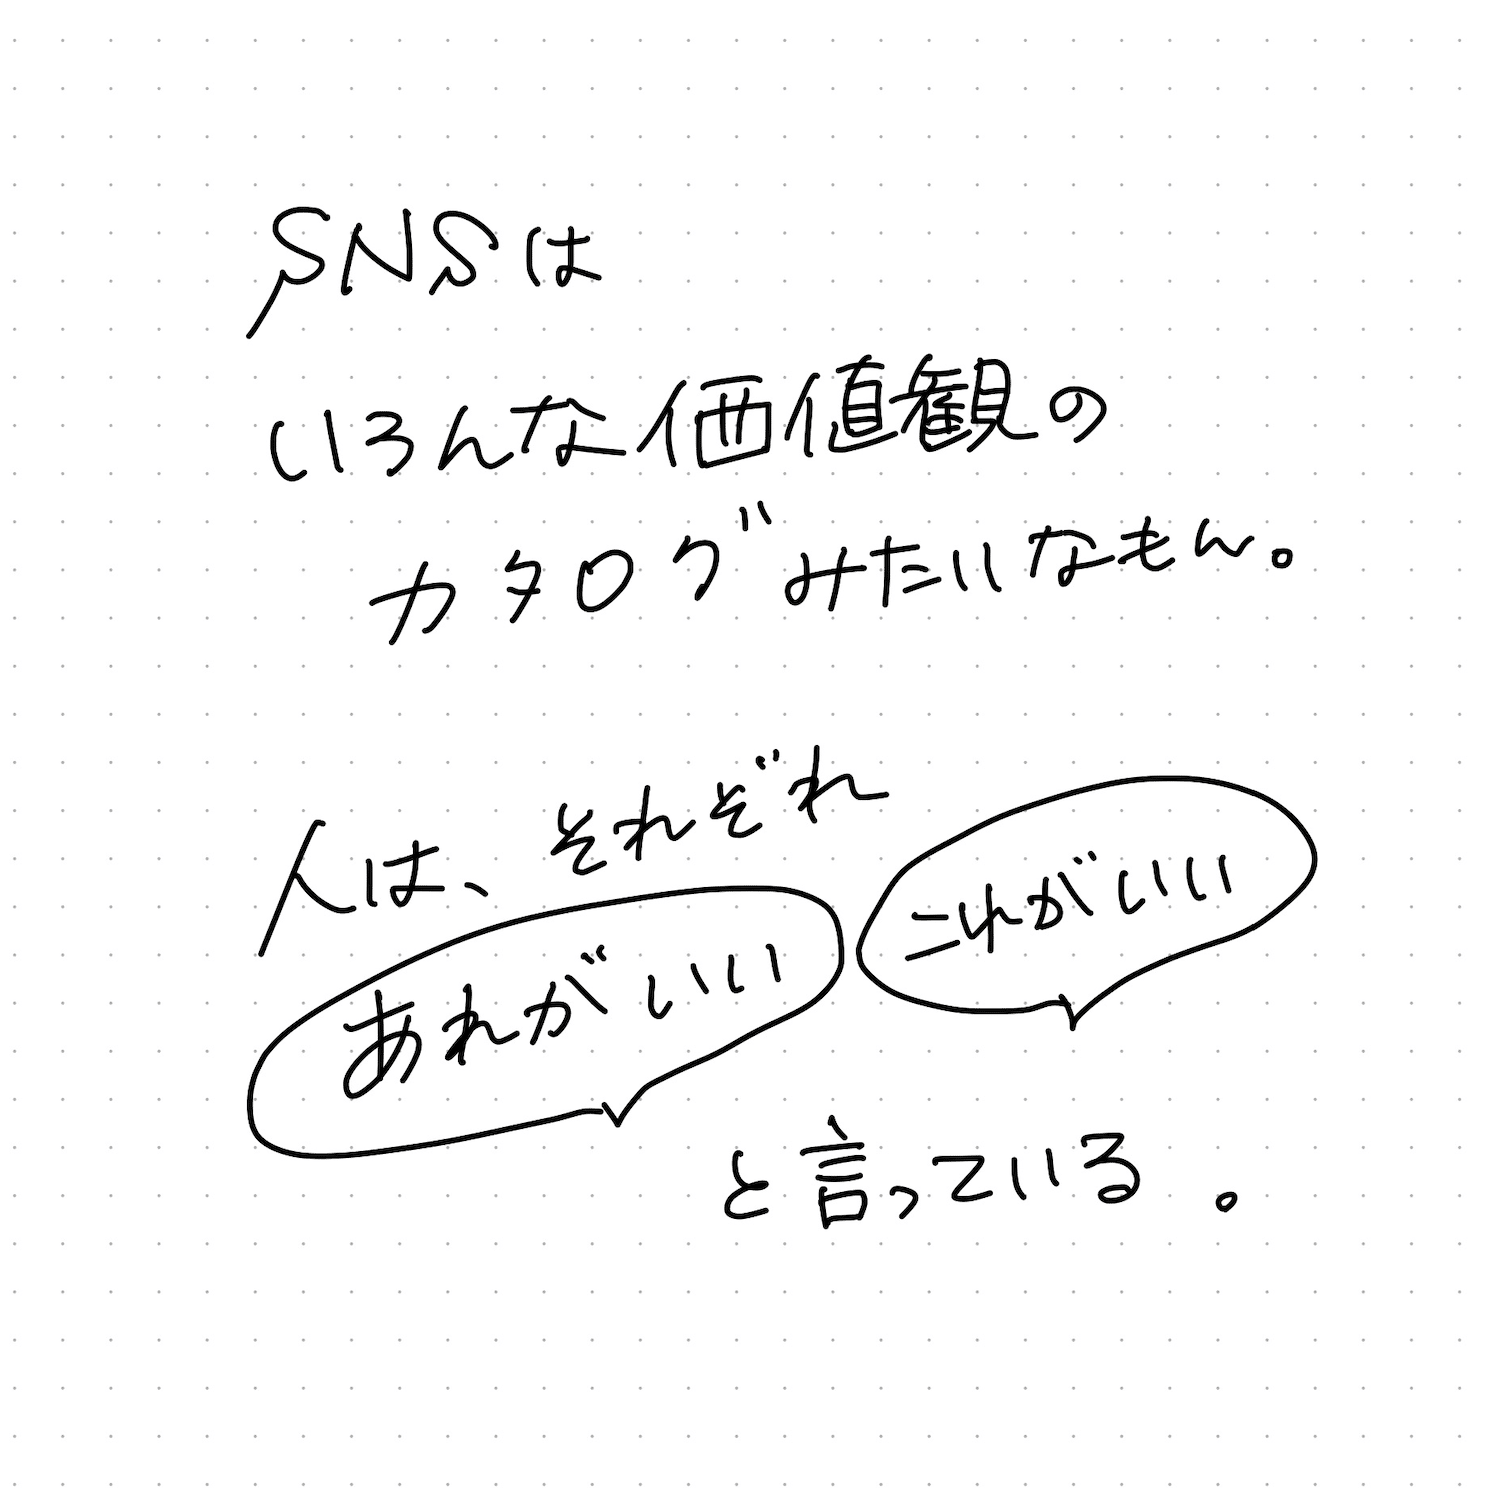 SNSは
いろんな価値観の
カタログみたいなもん。
人は、それぞれ
あれがいい
これがいい
と言っている。